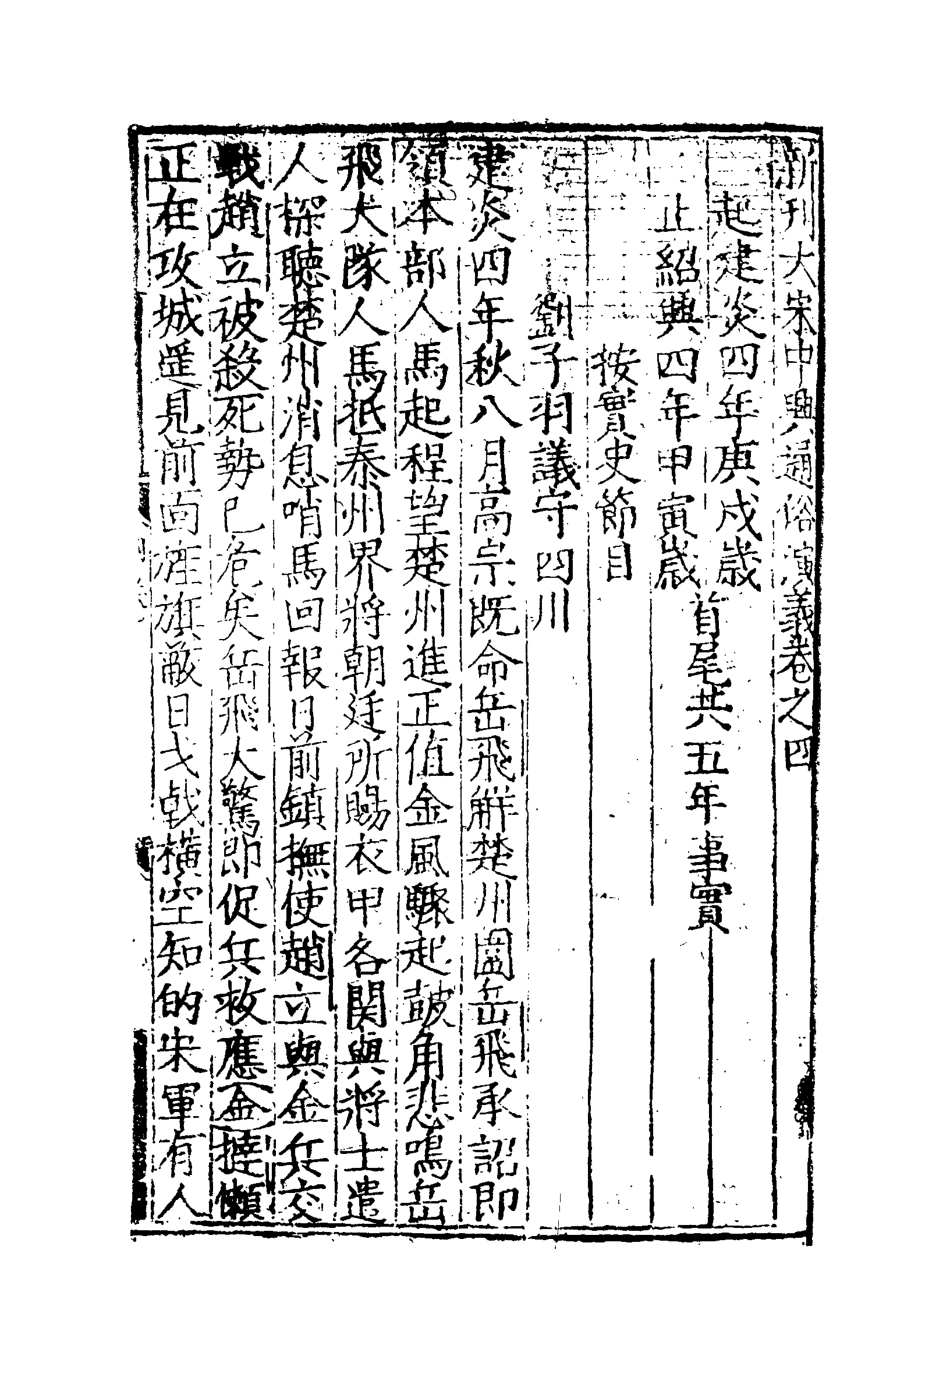 新刊大宋中興通俗演義卷之四
起建炎四年庚戌歲
止紹興四年甲寅歲
首尾共五年事實
按實史節目
劉子羽議守四川
建炎四年秋八月高宗既命岳飛解楚州圍岳飛承詔即
領本部人馬起程望楚州進正值金風驟起鼓角悲鳴岳
飛大隊人馬抵泰州界將朝廷所賜衣甲各関與將士遣
人探聽楚州消息哨馬回報日前鎮撫使趙立與金兵交
戰趙立被殺死勢已危矣岳飛大驚即促兵救應金撻懶
正在攻城遥見前面旌旗蔽日戈戟橫空知的宋軍有人